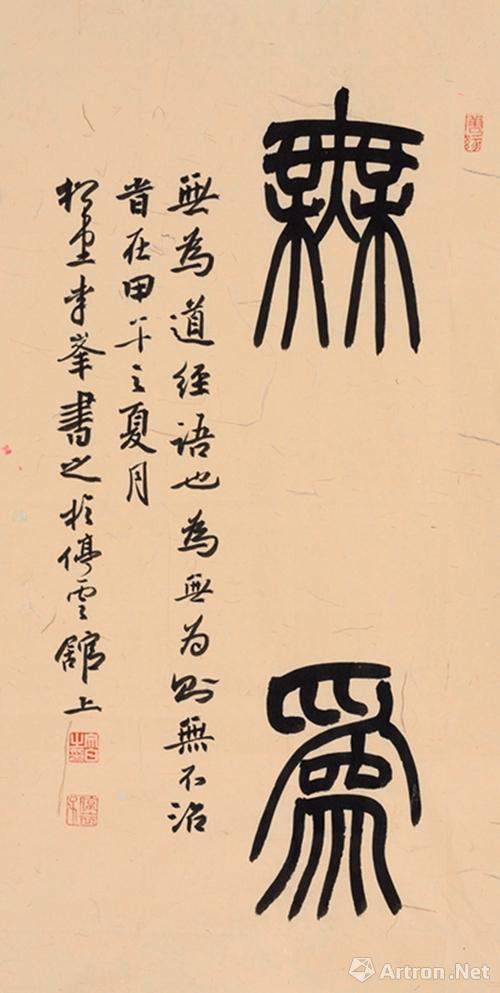 無為
無為道經語也為無為則無不治
旹在甲午之夏月
李峯書之於停雲館上
Artron.Net